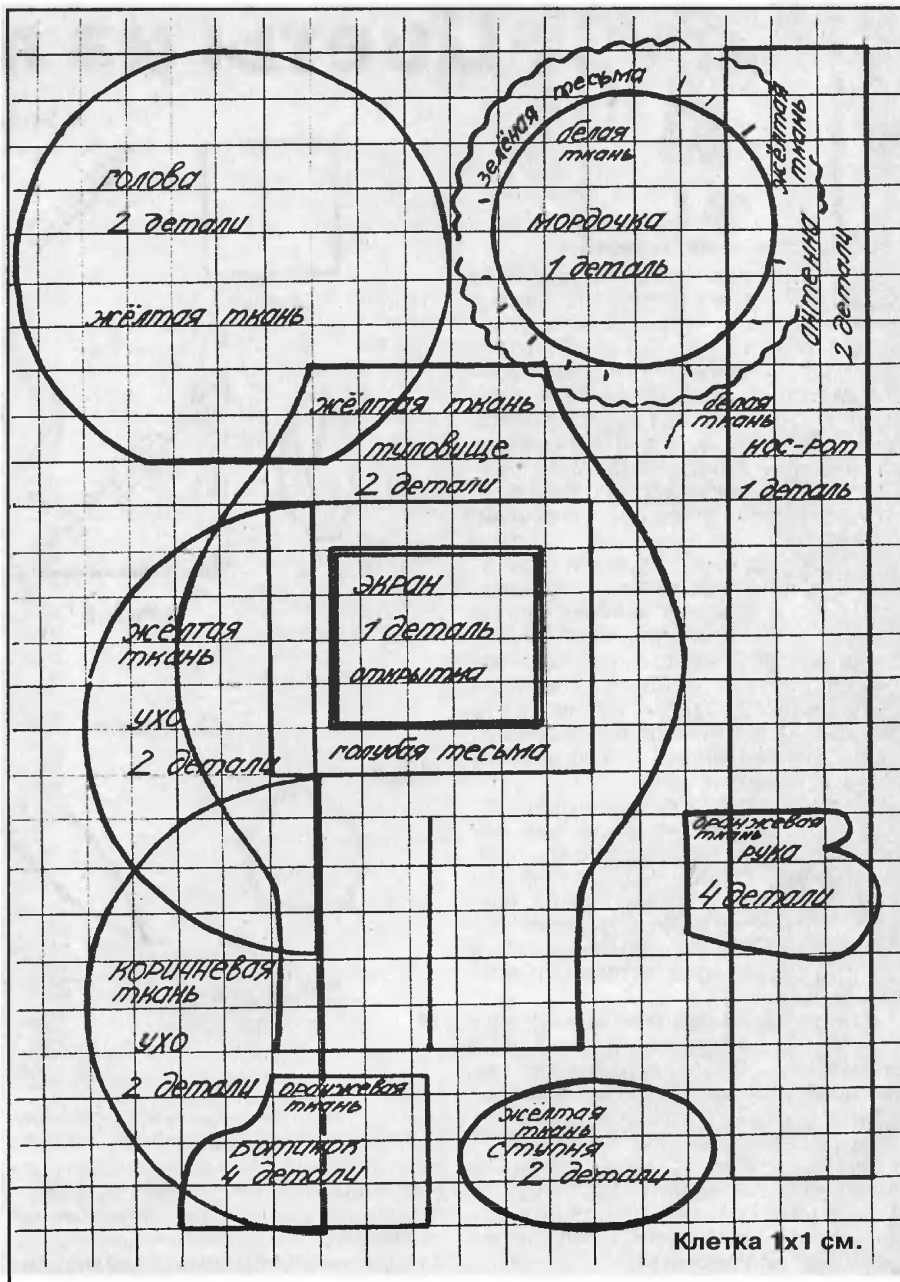 голова
2 детали
жёлтая ткань
зелёная тесьма
белая
ткань
мордочка
1 деталь
жёлтая
ткань
антенна
2 детали
жёлтая ткань
туловище
2 детали
белая
ткань
нос-рот
1 деталь
экран
1 деталь
открытка
голубая тесьма
жёлтая
ткань
ухо
2 детала
оранжевая
ткань
рука
4 детали
коричневая
ткань
ухо
2 детали
оранжевая
ткань
ботинок
4 детали
жёлтая
ткань
ступня
2 детали
Клетка 1х1 см.